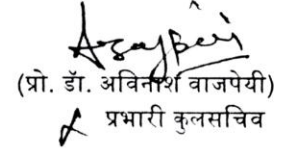 (प्रो. डॅा. अविनाश वाजपेयी)
प्रभारी कुलसचिव